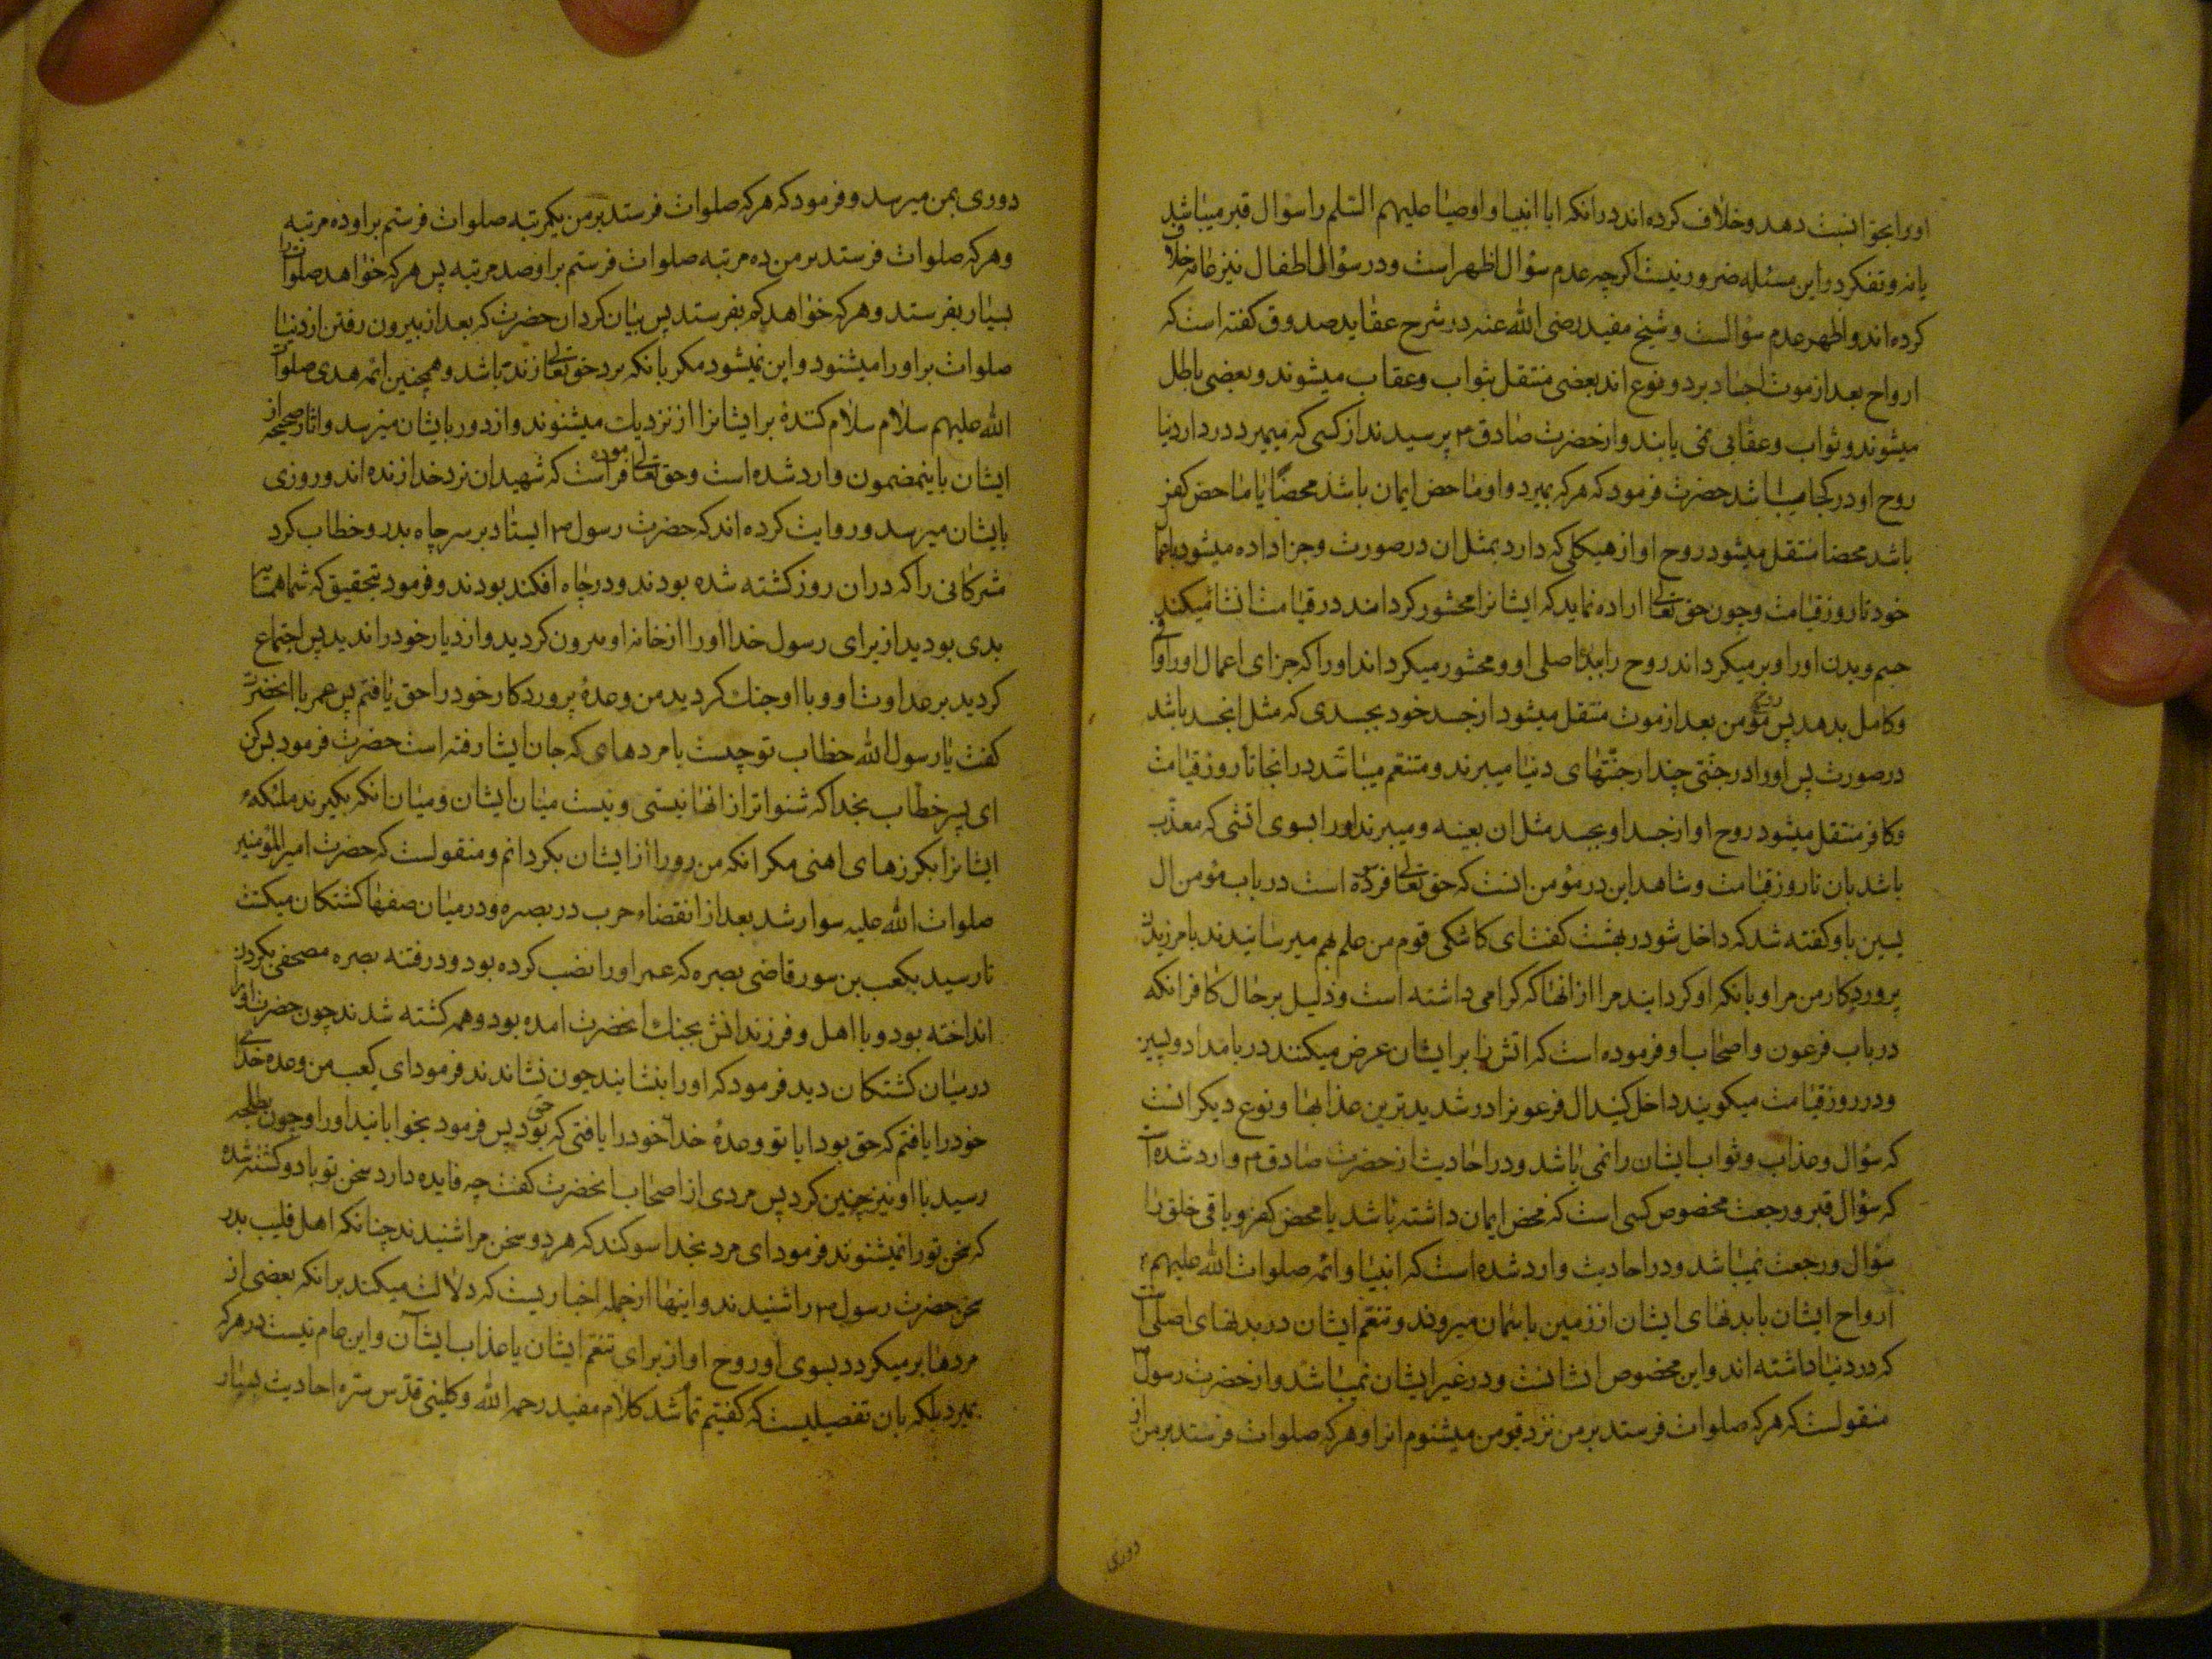 اورا بحق انسبت دهد و خلاف کرده اند در انکه ایا انبیا و اوصیا علیهم السلم را سؤال قبر میباشد
یا نه و تفکر در این مسئله ضرور نیست اکرچه عدم سؤال اظهر است و در سؤال اطفال نیز عامه خلاف
کرده اند و اظهر عدم سؤالست و شیخ مفید رضی الله عنه در شرح عقاید صدوق کفته است که
ارواح بعد از موت اجساد بر دو نوع اند بعضی منتقل بثواب و عقاب میشوند و بعضی باطل
میشوند و ثواب و عقابی نمی یابند و از حضرت صادق م پرسیدند از کسی که میمیرد در دار دنیا
روح او در کجا میباشد حضرت فرمود که هر که بمیرد و او ماحض ایمان باشد محضا یا ماحض کفر
باشد محضا منتقل میشود روح او از هیکلی که دارد بمثل ان در صورت و جزا داده میشود باعمال
خود تا روز قیامت و چون حق تعالی اراده نماید که ایشانرا محشور کرداند در قیامت انشا میکند
جسم و بدن او را و بر میکرداند روح را ببدن اصلی او و محشور میکرداند او را که جزای اعمال او را وافی
و کامل بدهد پس روح مؤمن بعد از موت منتقل میشود از جسد خود بجسدی که مثل انجسد باشد
در صورت پس او را در جنتی چند از جنتهای دنیا میبرند و متنعم میباشد در انجا تا روز قیامت
و کافر منتقل میشود روح او از جسد او بجسد مثل ان بعینه و میبرند او را بسوی اتشی که معذب
باشد بان تا روز قیامت و شاهد این در مؤمن انست که حق تعالی فرموده است در باب مؤمن ال
یسین باو کفته شد که داخل شو در بهشت کفت ای کاشکی قوم من علم بهم میرسانیدند بامرزیدن
پروردکار من مرا و بانکه او کردانید مرا از انها که کرامی داشته است و دلیل بر حال کافر انکه
در باب فرعون و اصحاب او فرموده است که اتش را بر ایشان عرض میکنند در بامداد و پسین
و در روز قیامت میکویند داخل کنید ال فرعونرا در شدیدترین عذابها و نوع دیکر انست
که سؤال و عذاب و ثواب ایشان را نمی باشد و در احادیث از حضرت صادق م وارد شده است
که سؤال قبر و رجعت مخصوص کسی است که محض ایمان داشته باشد یا محض کفر و باقی خلق را
سؤال و رجعت نمیباشد و در احادیث وارد شده است که انبیا و ائمه صلوات الله علیهم
ارواح ایشان با بدنهای ایشان از زمین باسمان میروند و تنعم ایشان در بدنهای اصلی است
که در دنیا داشته اند و این مخصوص ایشانست و در غیر ایشان نمیباشد و از حضرت رسول
منقولست که هر که صلوات فرستد بر من نزد قبر من میشنوم انرا و هر که صلوات فرستد بر من از
دوری
دوری بمن میرسد و فرمود که هر که صلوات فرستد بر من یکمرتبه صلوات فرستم بر او ده مرتبه
و هر که صلوات فرستد بر من ده مرتبه صلوات فرستم بر او صد مرتبه پس هر که خواهد صلوات
بسیار بفرستد و هر که خواهد کم بفرستد پس بیان کرد ان حضرت که بعد از بیرون رفتن از دنیا
صلوات بر او را میشنود و این نمیشود مکر بانکه نزد حق تعالی زنده باشد و همچنین ائمه هدی صلوات
الله علیهم سلام سلام کنندهٔ بر ایشانرا از نزدیک میشنوند و از دور بایشان میرسد و اثار صحیحه از
ایشان باینمضمون وارد شده است و حق تعالی فرموده است که شهیدان نزد خدا زنده اند و روزی
بایشان میرسد و روایت کرده اند که حضرت رسول ص ایستاد بر سر چاه بدر و خطاب کرد
مشرکانی را که در ان روز کشته شده بودند و در چاه افکنده بودند و فرمود بتحقیق که شما همسایه
بدی بودید از برای رسول خدا او را از خانه او بیرون کردید و از دیار خود راندید پس اجتماع
کردید بر عداوت او و با او جنک کردید من وعدهٔ پروردکار خود را حق یافتم پس عمر با انحضرت
کفت یا رسول الله خطاب تو چیست با مردهای که جان ایشان رفته است حضرت فرمود بس کن
ای پسر خطاب بخدا که شنواتر از انها نیستی و نیست میان ایشان و میان انکه بکیرند ملئکه
ایشانرا بکرزهای اهنی مکر انکه من رو را از ایشان بکردانم و منقولست که حضرت امیر المؤمنین
صلوات الله علیه سوار شد بعد از انقضاء حرب در بصره و در میان صفها کشتکان میکشت
تا رسید بکعب بن سور قاضی بصره که عمر او را نصب کرده بود و در فتنه بصره مصحفی بکردن
انداخته بود و با اهل و فرزندانش بجنک انحضرت امده بود و همه کشته شدند چون حضرت او را
در میان کشتکان دید فرمود که او را بنشانید چون نشاندند فرمود ای کعب من وعده خدای
خود را یافتم که حق بود ایا تو وعدهٔ خدا خود را یافتی که حق بود پس فرمود بخوابانید او را و چون بطلحه
رسید با او نیز چنین کرد پس مردی از اصحاب انحضرت کفت چه فایده دارد سخن تو با دو کشته شده
که سخن تو را نمیشنوند فرمود ای مرد بخدا سوکند که هر دو سخن مرا شنیدند چنانکه اهل قلیب بدر
سخن حضرت رسول ص را شنیدند و اینها از جمله اخباریست که دلالت میکند بر انکه بعضی از
مردها بر میکردد بسوی او روح او از برای تنعم ایشان یا عذاب ایشان و این عام نیست در هر که
بمیرد بلکه بان تفصیلیست که کفتیم تمام شد کلام مفید رحمه الله و کلینی قدس سره احادیث بسیار